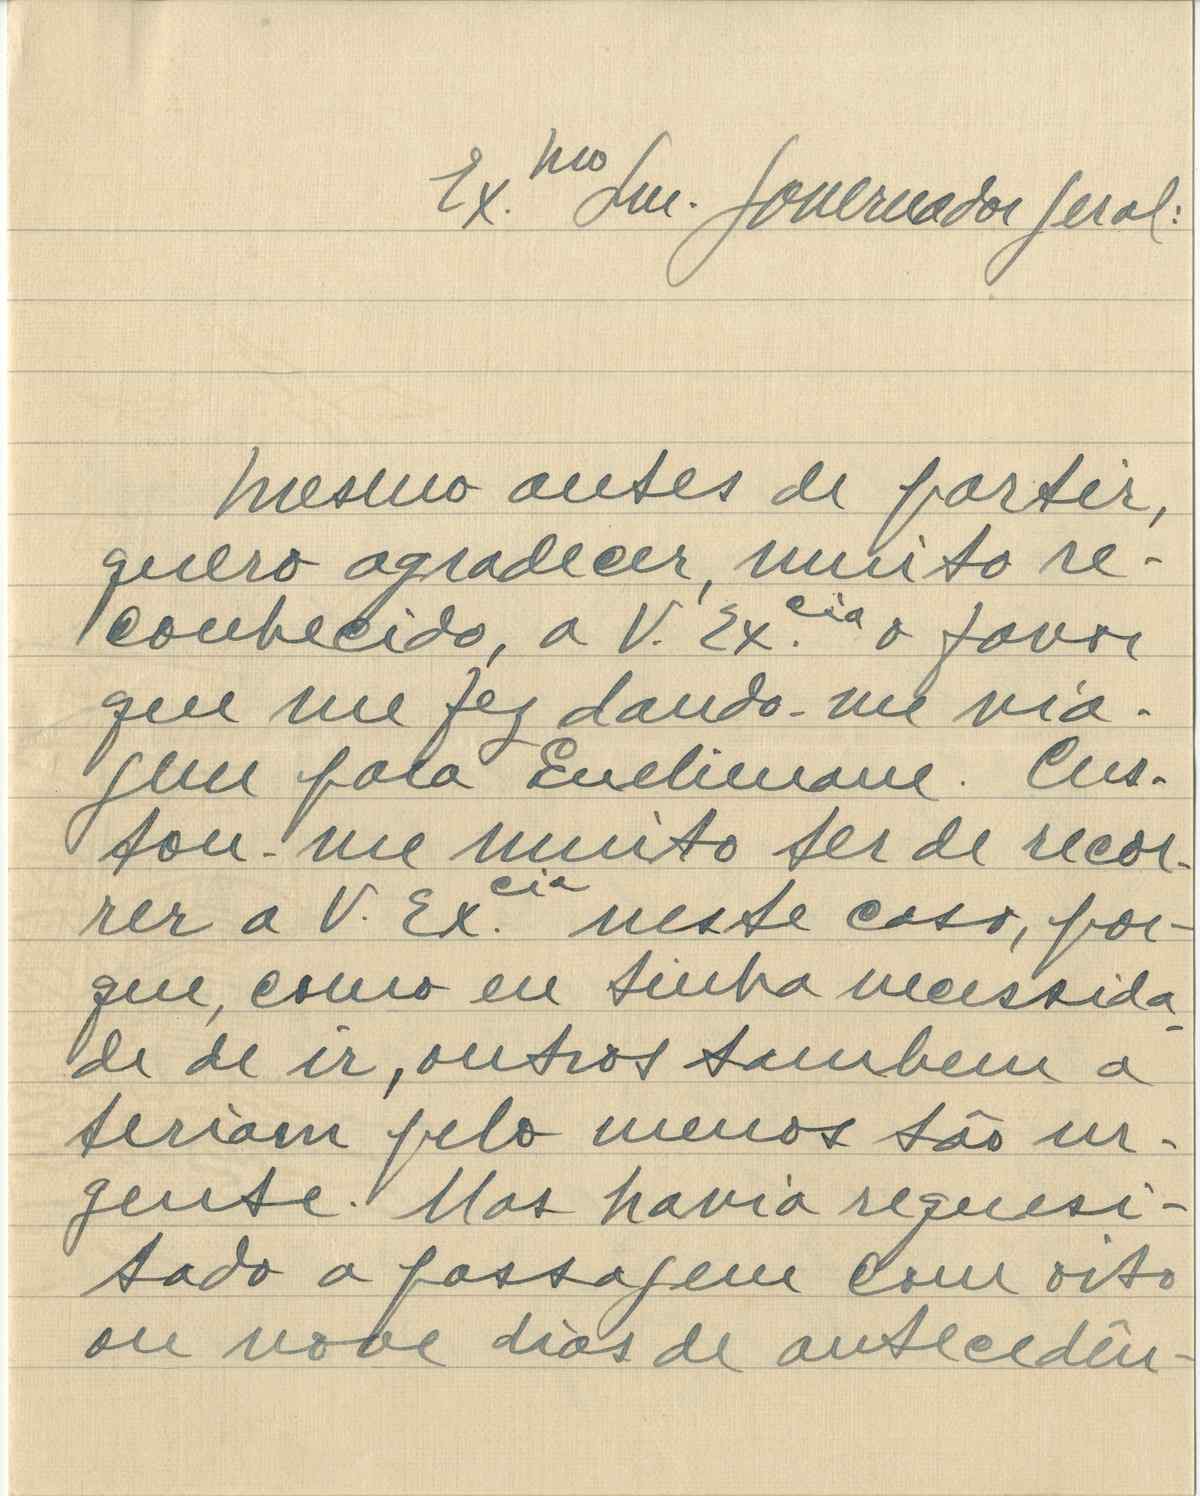 Ex.mo Snr. Governador Geral:
Mesmo antes de partir,
quero agradecer, muito re-
conhecido, a V. Ex.cia o favor
que me fez dando-me via-
gem para Quelimane. Cus-
tou-me muito ter de recor-
rer a V. Ex.cia neste caso, por-
que, como eu tinha necessida-
de de ir, outros tambem a
teriam pelo menos tão ur-
gente. Mas havia requesi-
tado a passagem com oito
ou nove dias de antecedên-